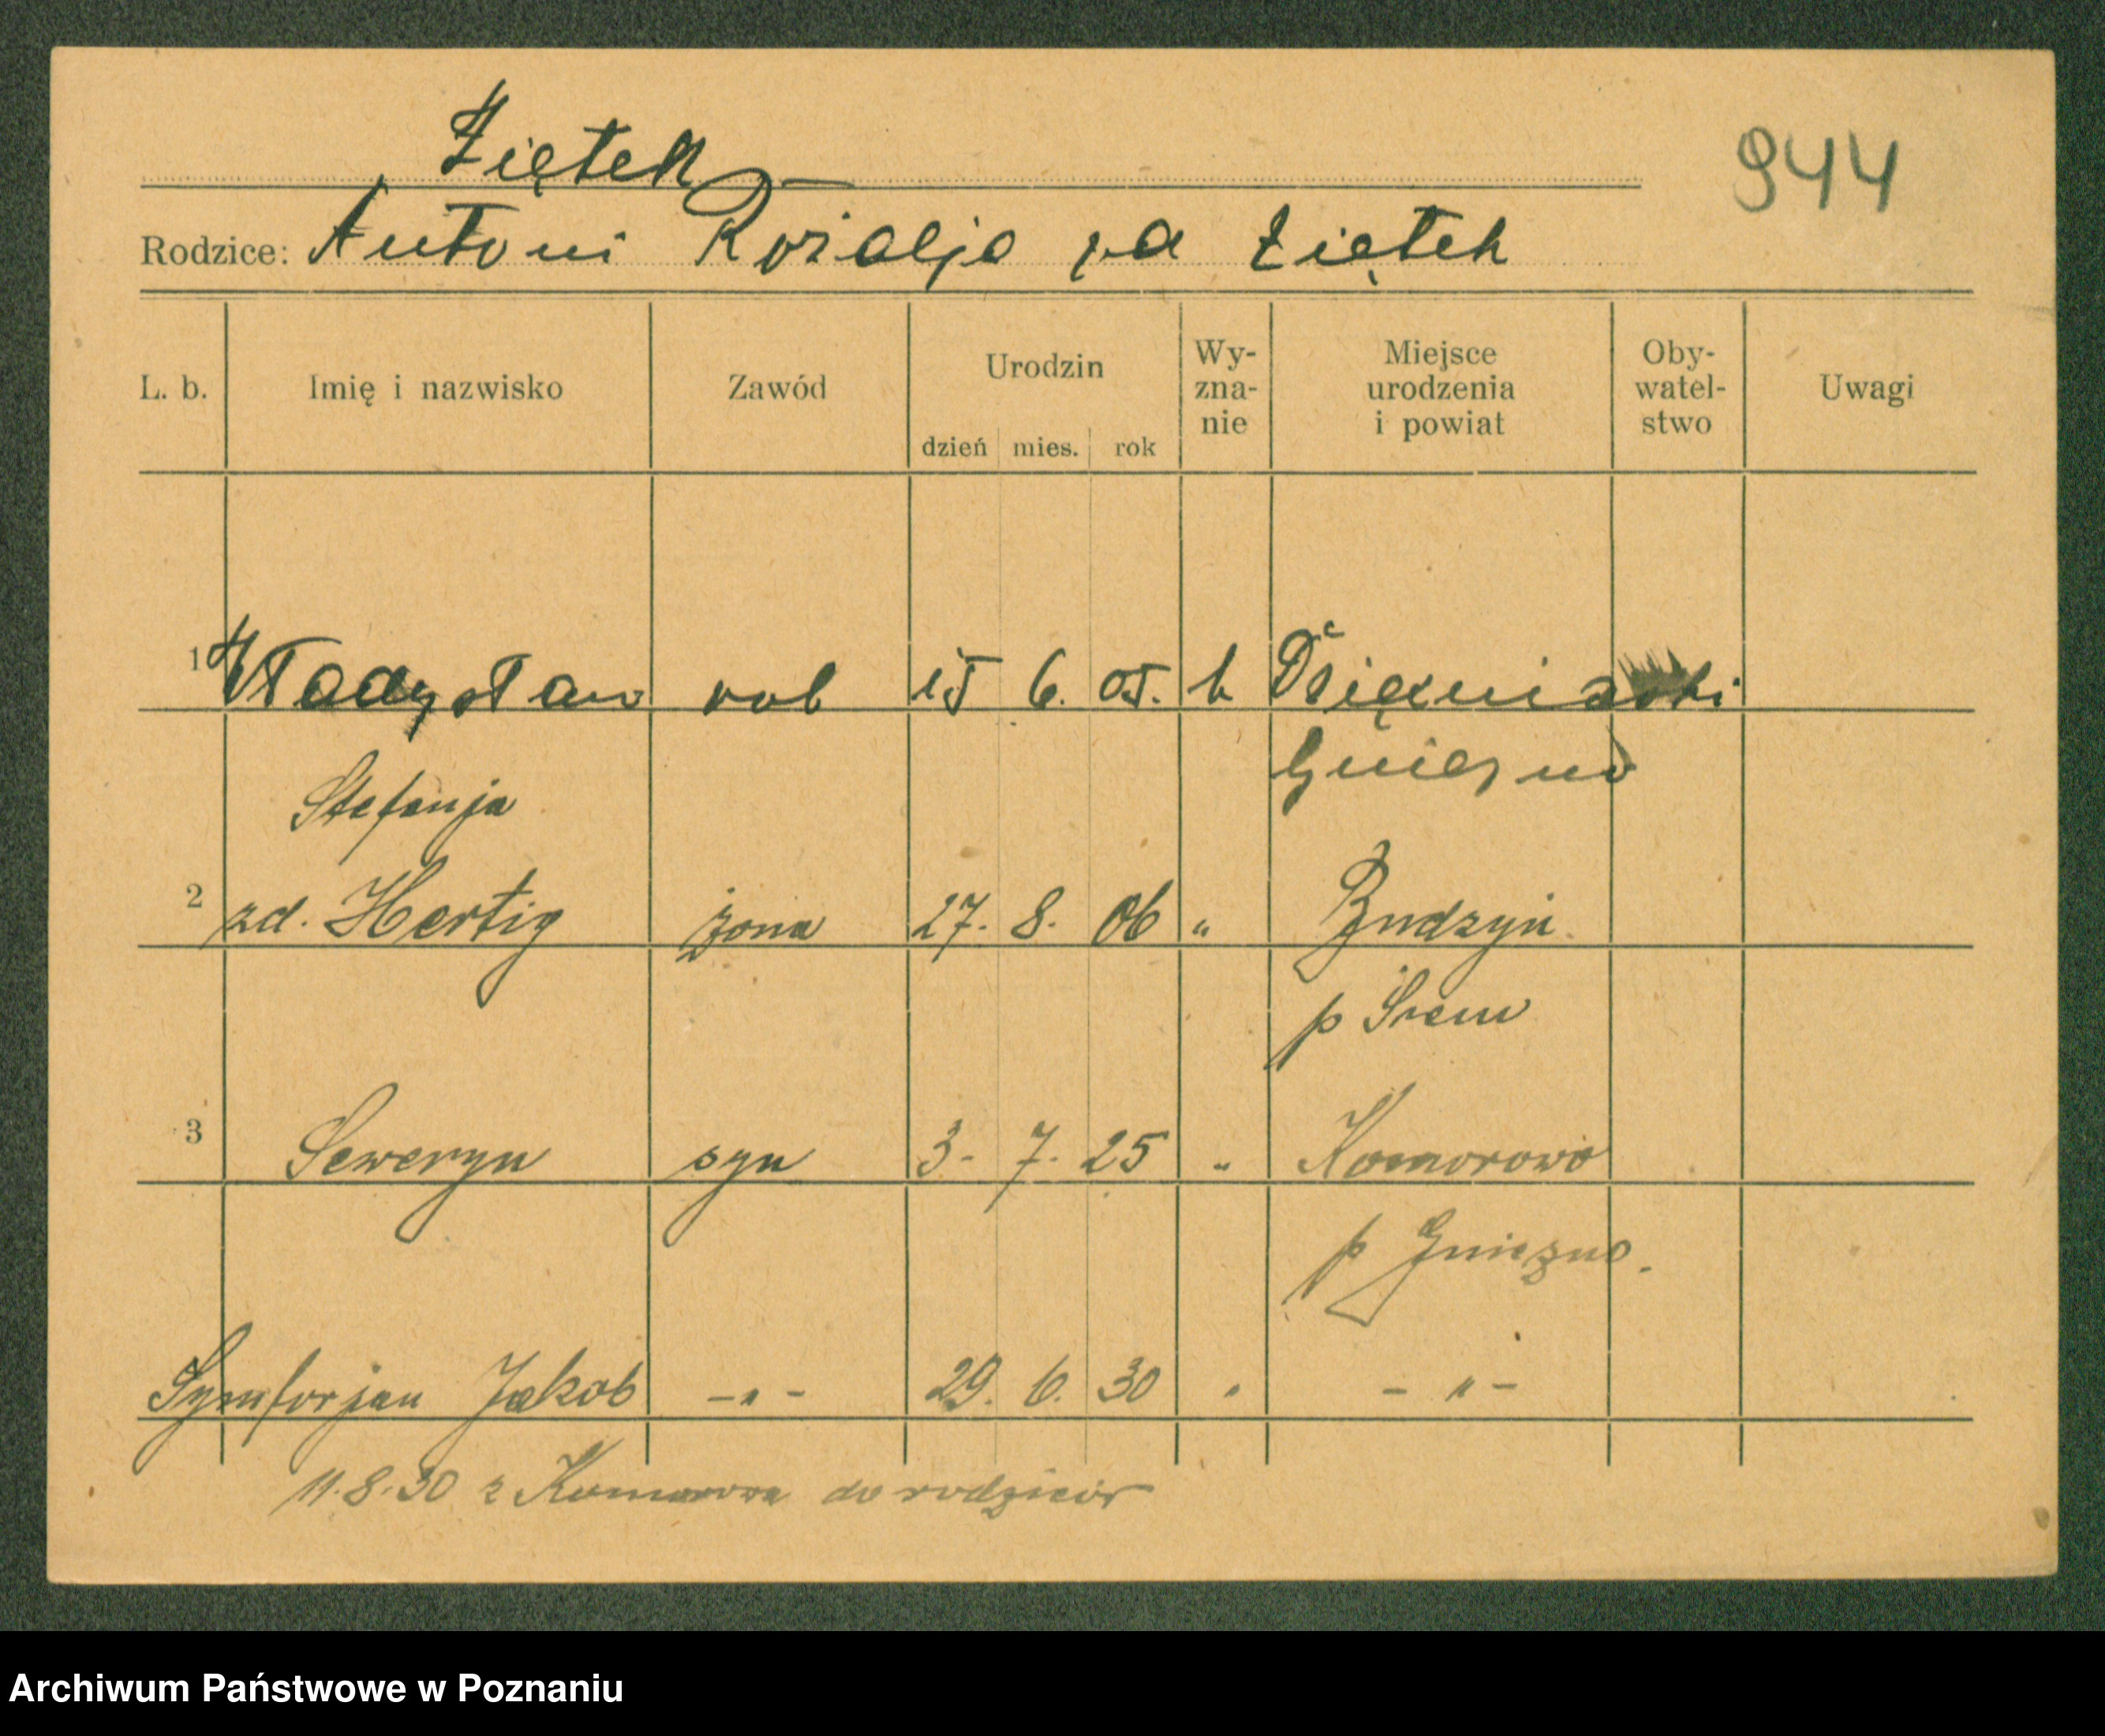 Ziętek
944
Rodzice: Antoni Rozalja zd Ziętek
L. b. Imię i nazwisko Zawód Urodzin dzień mies. rok Wy-zna-nie Miejsce urodzenia i powiat Oby-watel-stwo Uwagi
1 Władysław rob 15 6. 05. k
Gniezno
Stefanja
2 zd. Hertig żona 27. 8. 06 " Budzyń
p Śrem
3 Seweryn syn 3. 7. 25 " Komorowo
p Gniezno.
Symforjan Jakób -"- 29. 6. 30 " -"-
11.8.30 z Komorowa do rodziców
Archiwum Państwowe w Poznaniu